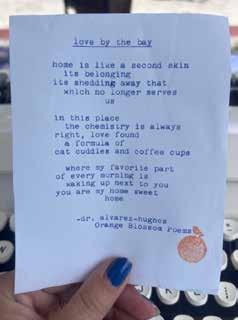 love by the bay
home is like a second skin
its belonging
its shedding away that
which no longer serves
us
in this place
the chemistry is always
right, love found
a formula of
cat cuddles and coffee cups
where my favorite part
of every morning is
waking up next to you
you are my home sweet
home
-dr. alvarez-hughes
Orange Blossom Poems